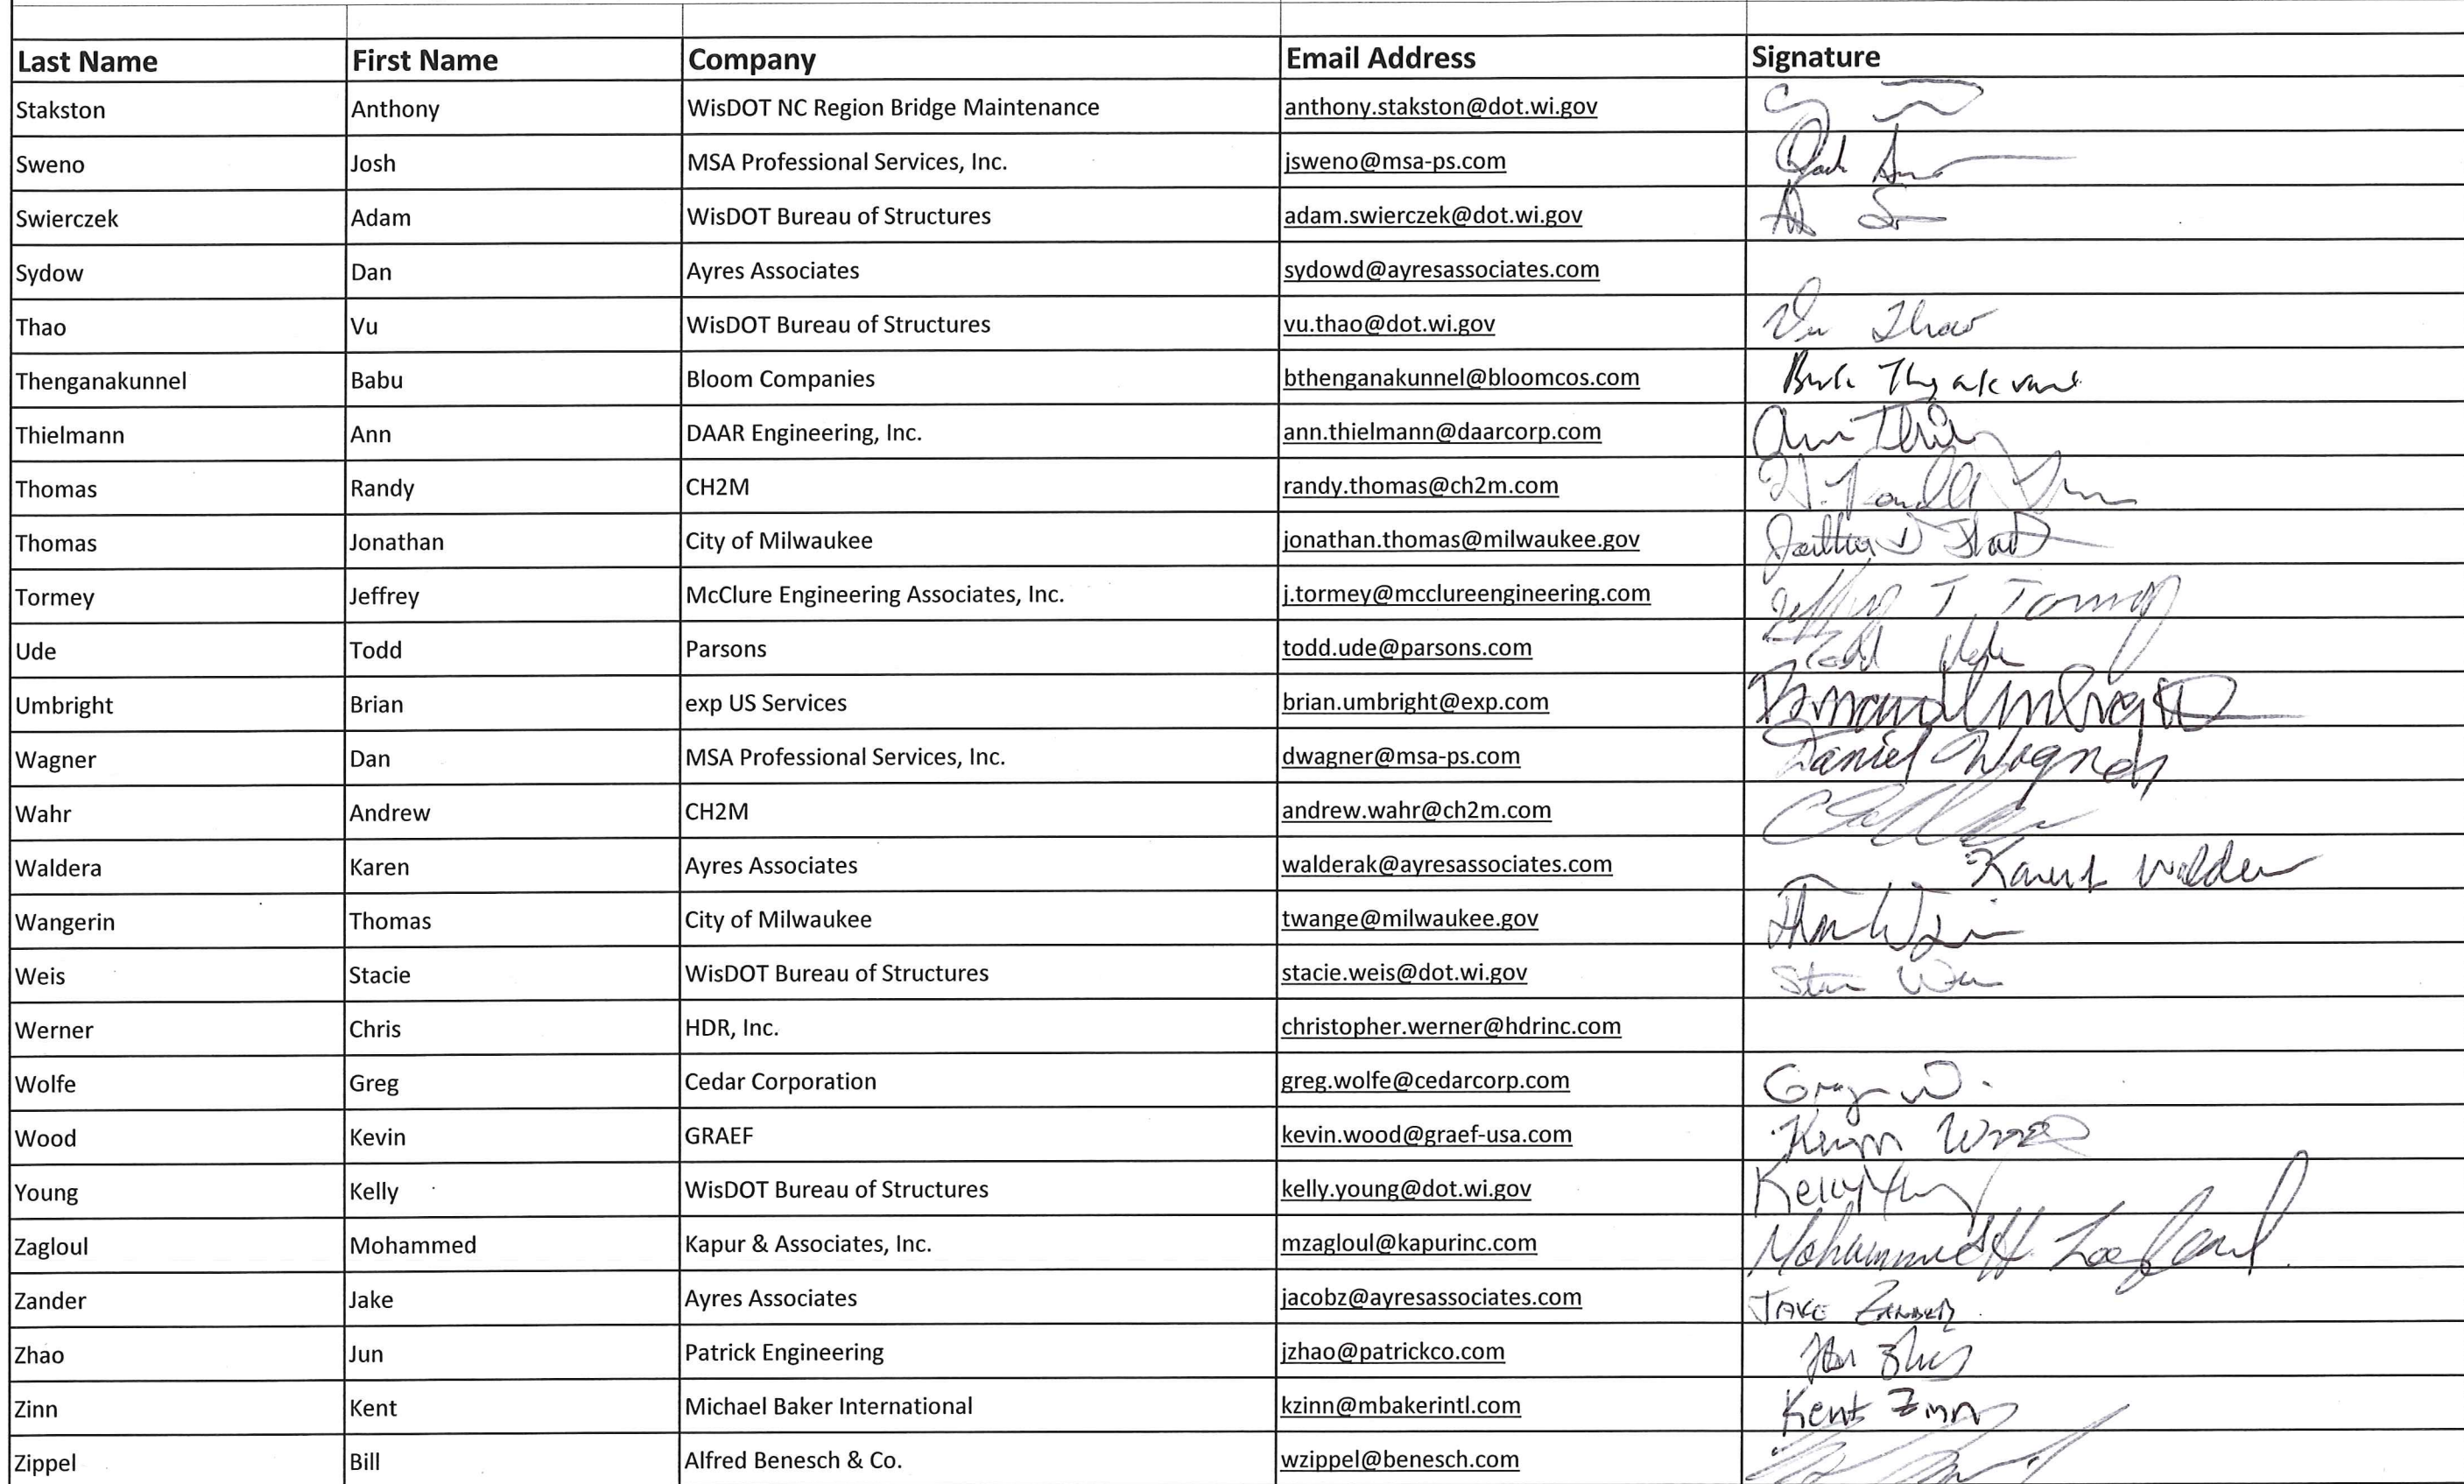 Last Name First Name Company Email Address Signature
Stakston Anthony WisDOT NC Region Bridge Maintenance anthony.stakston@dot.wi.gov
Sweno Josh MSA Professional Services, Inc. jsweno@msa-ps.com
Swierczek Adam WisDOT Bureau of Structures adam.swierczek@dot.wi.gov
Sydow Dan Ayres Associates sydowd@ayresassociates.com
Thao Vu WisDOT Bureau of Structures vu.thao@dot.wi.gov Vu Thao
Thenganakunnel Babu Bloom Companies bthenganakunnel@bloomcos.com
Thielmann Ann DAAR Engineering, Inc. ann.thielmann@daarcorp.com Ann
Thomas Randy CH2M randy.thomas@ch2m.com
Thomas Jonathan City of Milwaukee jonathan.thomas@milwaukee.gov
Tormey Jeffrey McClure Engineering Associates, Inc. j.tormey@mcclureengineering.com Jeffrey T. Tormey
Ude Todd Parsons todd.ude@parsons.com Todd Ude
Umbright Brian exp US Services brian.umbright@exp.com Umbright
Wagner Dan MSA Professional Services, Inc. dwagner@msa-ps.com Daniel Wagner
Wahr Andrew CH2M andrew.wahr@ch2m.com
Waldera Karen Ayres Associates walderak@ayresassociates.com Karen Waldera
Wangerin Thomas City of Milwaukee twange@milwaukee.gov
Weis Stacie WisDOT Bureau of Structures stacie.weis@dot.wi.gov
Werner Chris HDR, Inc. christopher.werner@hdrinc.com
Wolfe Greg Cedar Corporation greg.wolfe@cedarcorp.com Greg W.
Wood Kevin GRAEF kevin.wood@graef-usa.com Kevin Wood
Young Kelly WisDOT Bureau of Structures kelly.young@dot.wi.gov Kelly Young
Zagloul Mohammed Kapur & Associates, Inc. mzagloul@kapurinc.com Mohammed H. Zagloul
Zander Jake Ayres Associates jacobz@ayresassociates.com JAKE ZANDER
Zhao Jun Patrick Engineering jzhao@patrickco.com Jun Zhao
Zinn Kent Michael Baker International kzinn@mbakerintl.com Kent Zinn
Zippel Bill Alfred Benesch & Co. wzippel@benesch.com